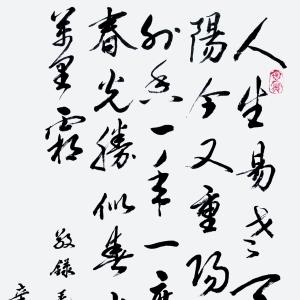 人生易老天
陽今又重陽
外香一年一度
春光勝似春光
萬里霜
敬錄毛